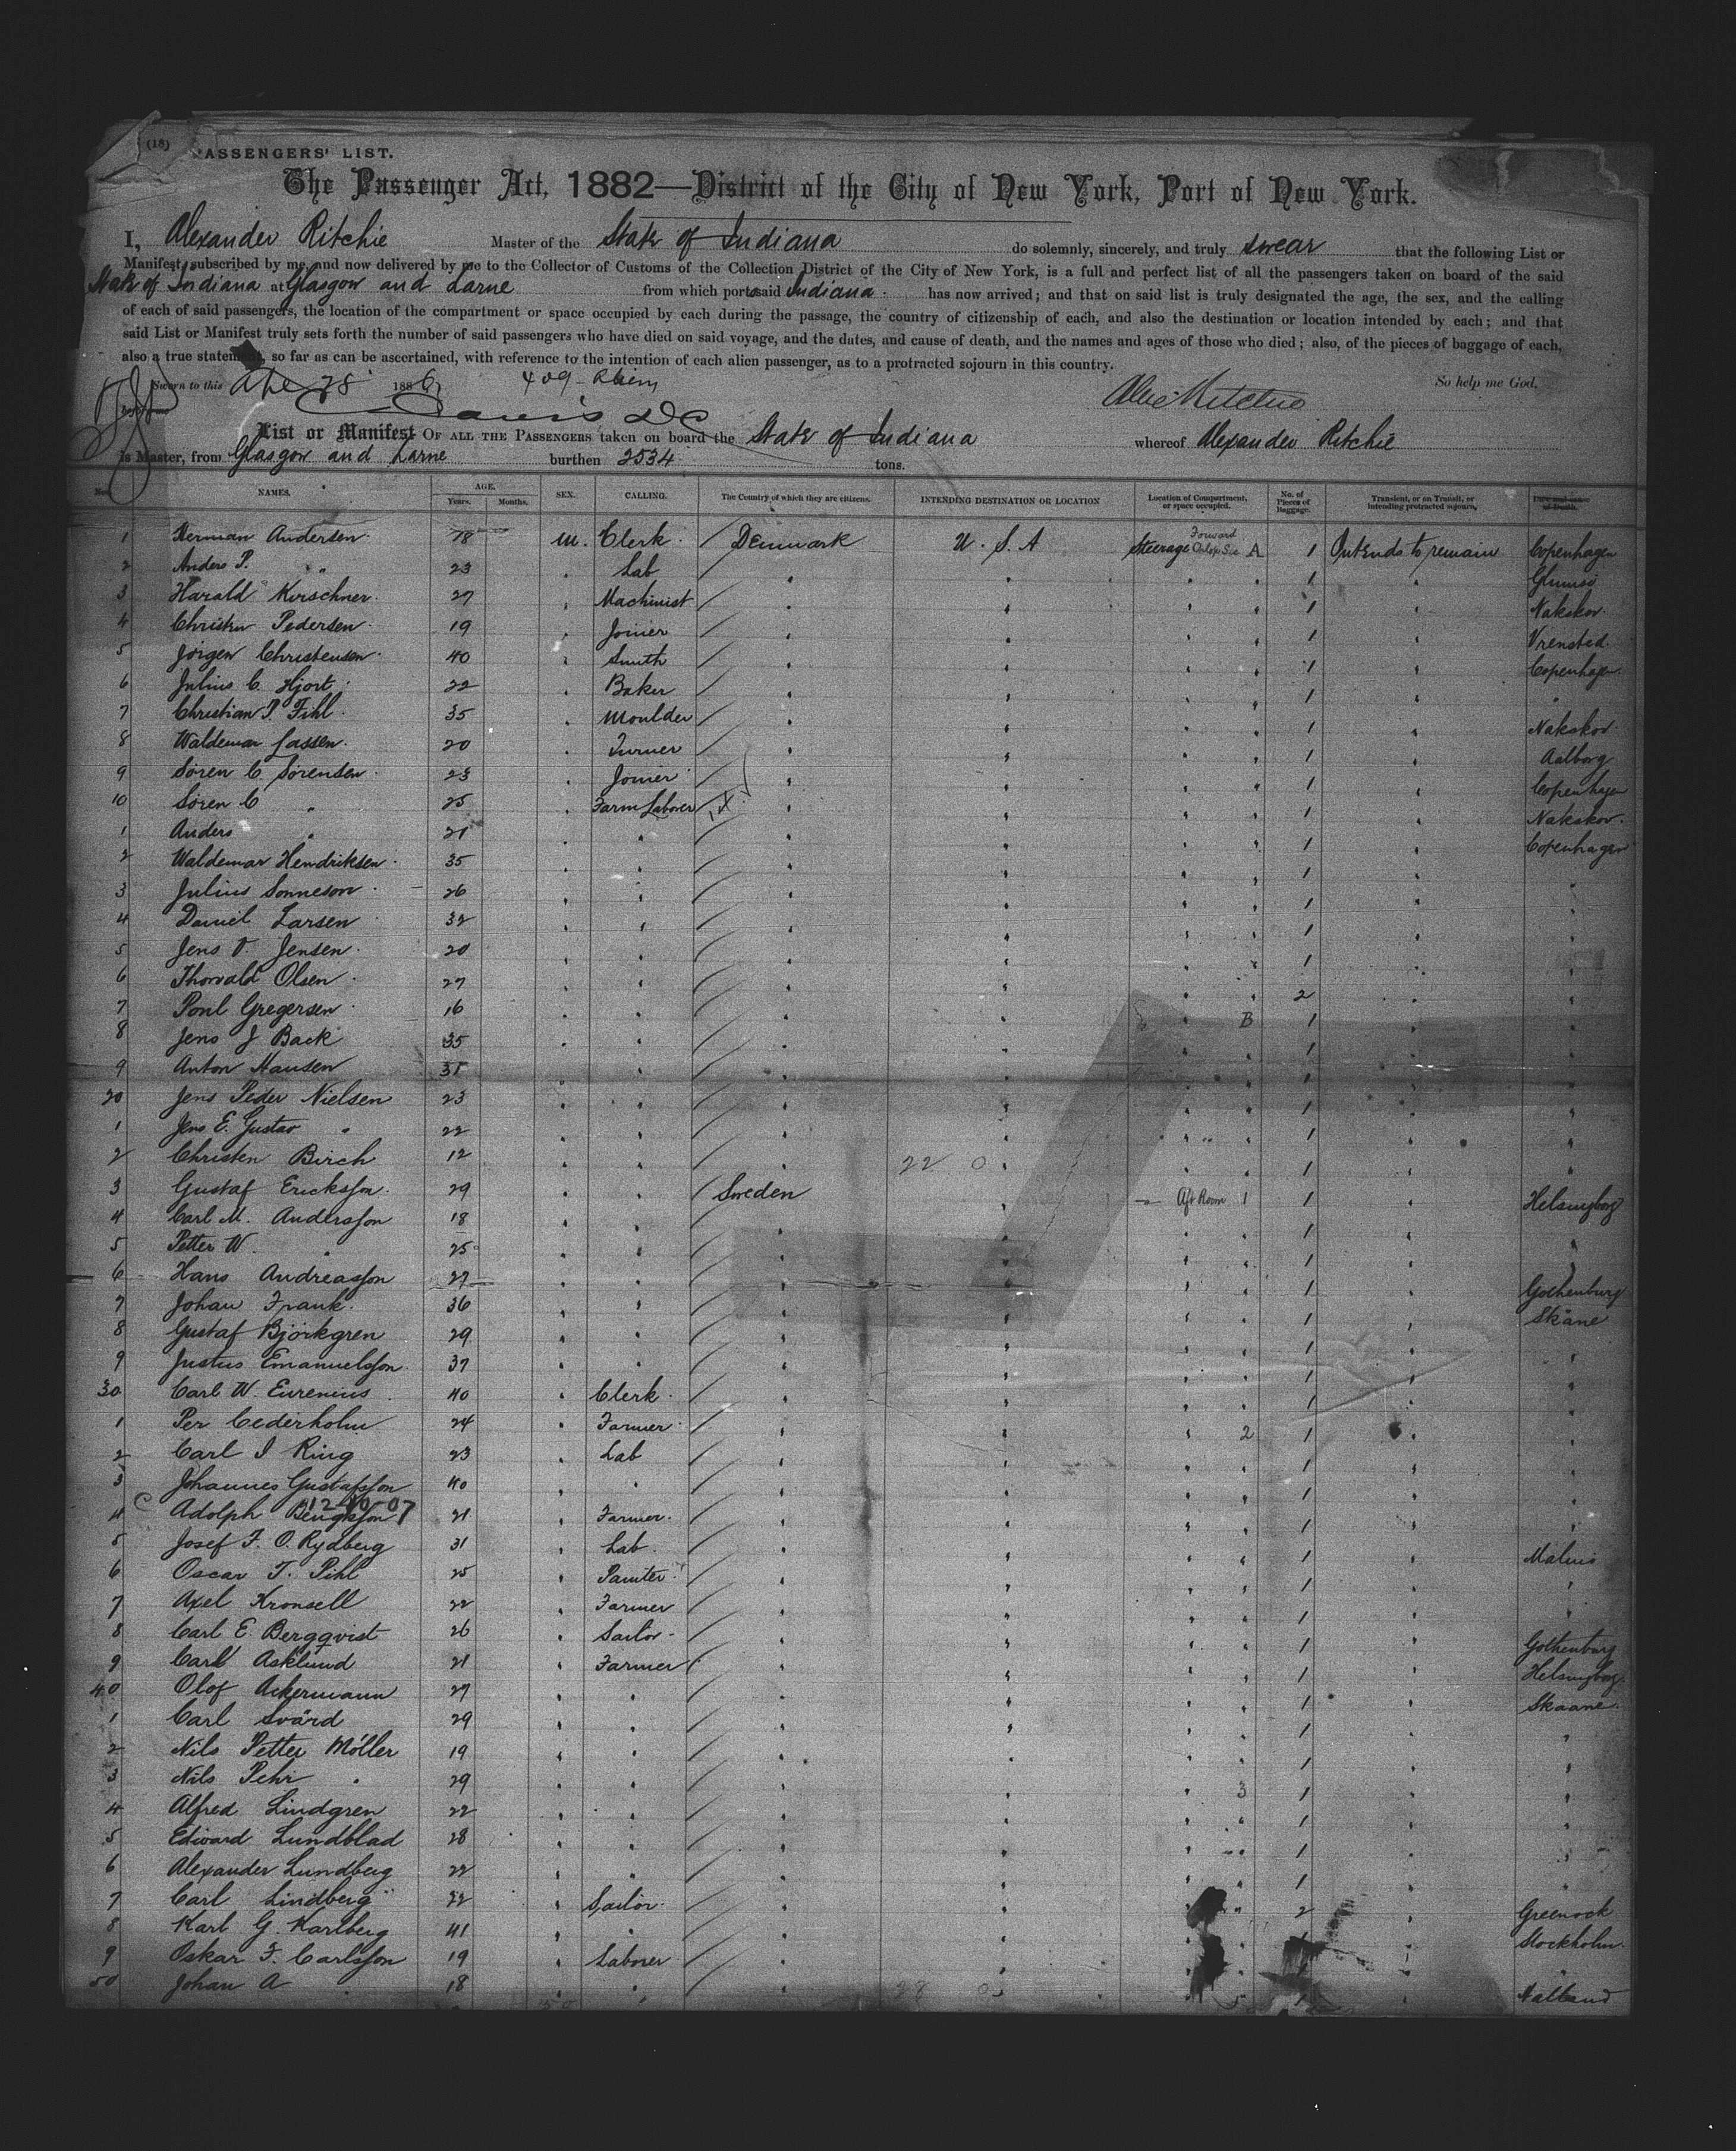 (18) PASSENGERS' LIST.
The Passenger Act, 1882—District of the City of New York, Port of New York.
I, Alexander Ritchie Master of the State of Indiana do solemnly, sincerely, and truly swear that the following List or
Manifest, subscribed by me, and now delivered by me to the Collector of Customs of the Collection District of the City of New York, is a full and perfect list of all the passengers taken on board of the said
State of Indiana at Glasgow and Larne from which ports said Indiana has now arrived; and that on said list is truly designated the age, the sex, and the calling
of each of said passengers, the location of the compartment or space occupied by each during the passage, the country of citizenship of each, and also the destination or location intended by each; and that
said List or Manifest truly sets forth the number of said passengers who have died on said voyage, and the dates, and cause of death, and the names and ages of those who died; also, of the pieces of baggage of each,
also a true statement, so far as can be ascertained, with reference to the intention of each alien passenger, as to a protracted sojourn in this country.
Sworn to this Apl 28 1886 409 Alex Ritchie So help me God.
List or Manifest OF ALL THE PASSENGERS taken on board the State of Indiana whereof Alexander Ritchie
is Master, from Glasgow and Larne burthen 2534 tons.
No. NAMES. AGE. Years. Months. SEX. CALLING. The Country of which they are citizens. INTENDING DESTINATION OR LOCATION Location of Compartment, or space occupied. No. of Pieces of Baggage. Transient, or on Transit, or intending protracted sojourn. Date and cause of Death.
1 Herman Andersen 78 M. Clerk Denmark U.S.A Steerage Forward A 1 Intends to remain Copenhagen
2 Anders P. " 23 " Lab " " " " 1 " Glumsö
3 Harald Kirschner 27 " Machinist " " " " 1 " Nakskov
4 Christen Pedersen 19 " Joiner " " " " 1 " Vrensted
5 Jörgen Christensen 40 " Smith " " " " 1 " Copenhagen
6 Julius C. Hjort 22 " Baker " " " " 1 " "
7 Christian P. Fihl 35 " Moulder " " " " 1 " Nakskov
8 Waldemar Jassen 20 " Turner " " " " 1 " Aalborg
9 Sören C. Sörensen 23 " Joiner " " " " 1 " Copenhagen
10 Sören C " 25 " Farm Laborer X " " " " 1 " Nakskov
1 Anders " 21 " " " " " " 1 " Copenhagen
2 Waldemar Hendriksen 35 " " " " " " 1 "
3 Julius Sonneson 26 " " " " " " 1 " "
4 Daniel Larsen 32 " " " " " " 1 " "
5 Jens T. Jensen 20 " " " " " " 1 " "
6 Thorvald Olsen 27 " " " " " " 2 " "
7 Poul Gregersen 16 " " " " " B 1 " "
8 Jens J Back 35 " " " " " " 1 " "
9 Anton Hansen 35 " " " " " " 1 " "
20 Jens Peder Nielsen 23 " " " " " " 1 " "
1 Jens E. Gustav " 22 " " " " " " 1 " "
2 Christen Birch 12 " " " 22 0 " " " 1 " "
3 Gustaf Ericksson 29 " " Sweden " Aft Room 1 1 " Helsingborg
4 Carl M. Andersson 18 " " " " " " 1 " "
5 Petter W. " 25 " " " " " " 1 " "
6 Hans Andreasson 27 " " " " " " 1 " Gothenburg
7 Johan Frank 36 " " " " " " 1 " Skåne
8 Gustaf Björkgren 29 " " " " " " 1 " "
9 Justus Emanuelsson 37 " " " " " " 1 " "
30 Carl W. Eurenius 40 " Clerk " " " " 1 " "
1 Per Cederholm 24 " Farmer " " " 2 1 " "
2 Carl I Ring 23 " Lab " " " " 1 " "
3 Johannes Gustafsson 40 " " " " " " 1 " "
C 12-10-07
4 Adolph Bengtsson 21 " Farmer " " " " 1 " "
5 Josef F. O. Rydberg 31 " Lab " " " " 1 " Malmö
6 Oscar T. Pihl 25 " Painter " " " " 1 " "
7 Axel Kronsell 22 " Farmer " " " " 1 " "
8 Carl E. Bergqvist 26 " Sailor " " " " 1 " Gothenburg
9 Carl Asklund 21 " Farmer " " " " 1 " Helsingborg
40 Olof Ackermann 27 " " " " " " 1 " Skaane
1 Carl Svärd 29 " " " " " " 1 " "
2 Nils Petter Möller 19 " " " " " " 1 " "
3 Nils Pehr " 29 " " " " " 3 1 " "
4 Alfred Lindgren 22 " " " " " " 1 " "
5 Edward Lundblad 28 " " " " " " 1 " "
6 Alexander Lundberg 22 " " " " " " 1 " "
7 Carl Lindberg 22 " Sailor " " " " 2 " Greenock
8 Karl G. Karlberg 41 " " " " " " " Stockholm
9 Oskar F. Carlsson 19 " Laborer " " " " " "
50 Johan A " 18 " " " 28 " " 1 " Halland